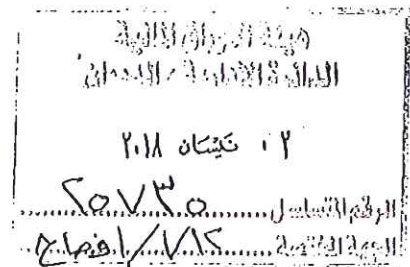 هيئة الأوراق المالية
الدائرة الإدارية / الديوان
٠٢ نيسان ٢٠١٨
الرقم المتسلسل ٢٥٧٣٥
الجهة المختصة ٧١٢/ افصاح